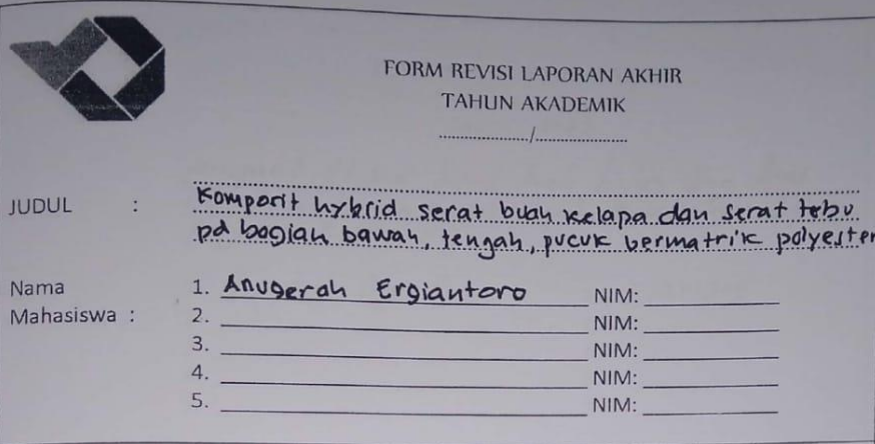 FORM REVISI LAPORAN AKHIR
TAHUN AKADEMIK
...................../.....................
JUDUL : Komposit hybrid serat buah kelapa dan serat tebu
pd bagian bawah, tengah, pucuk bermatrik polyester
Nama
Mahasiswa :
1. Anugerah Ergiantoro NIM:
2. NIM:
3. NIM:
4. NIM:
5. NIM: